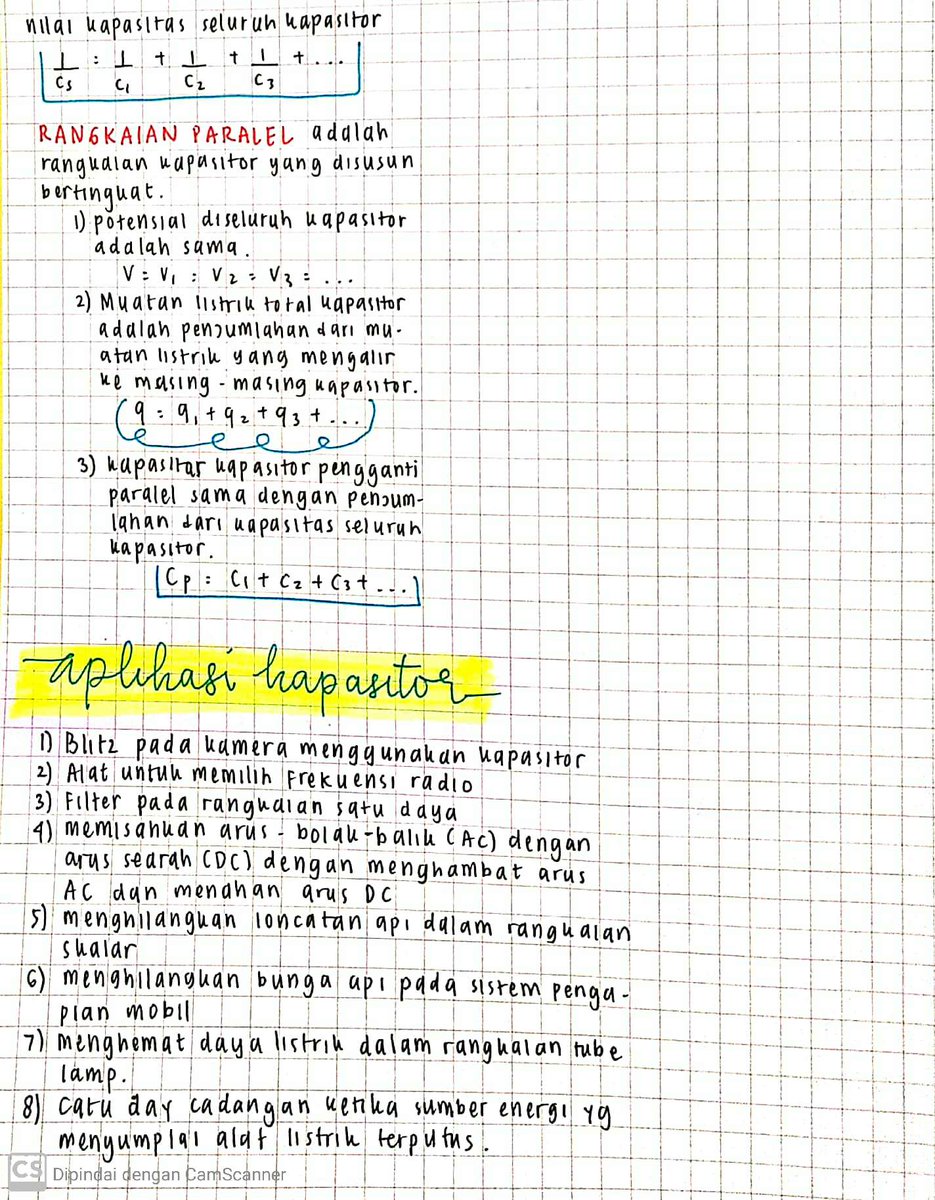 nilai kapasitas seluruh kapasitor
1/Cs = 1/C1 + 1/C2 + 1/C3 + ...
RANGKAIAN PARALEL adalah
rangkaian kapasitor yang disusun
bertingkat.
1) potensial diseluruh kapasitor
adalah sama.
V = V1 = V2 = V3 = ...
2) Muatan listrik total kapasitor
adalah penjumlahan dari mu-
atan listrik yang mengalir
ke masing - masing kapasitor.
q = q1 + q2 + q3 + ...
3) kapasitar kapasitor pengganti
paralel sama dengan penjum-
lahan dari kapasitas seluruh
kapasitor.
Cp = C1 + C2 + C3 + ...
aplikasi kapasitor
1) Blitz pada kamera menggunakan kapasitor
2) Alat untuk memilih frekuensi radio
3) Filter pada rangkaian satu daya
4) memisahkan arus - bolak-balik (AC) dengan
arus searah (DC) dengan menghambat arus
AC dan menahan arus DC
5) menghilangkan loncatan api dalam rangkaian
skalar
6) menghilangkan bunga api pada sistem penga-
pian mobil
7) menghemat daya listrik dalam rangkaian tube
lamp.
8) catu day cadangan ketika sumber energi yg
menyumplai alat listrik terputus.
CS Dipindai dengan CamScanner